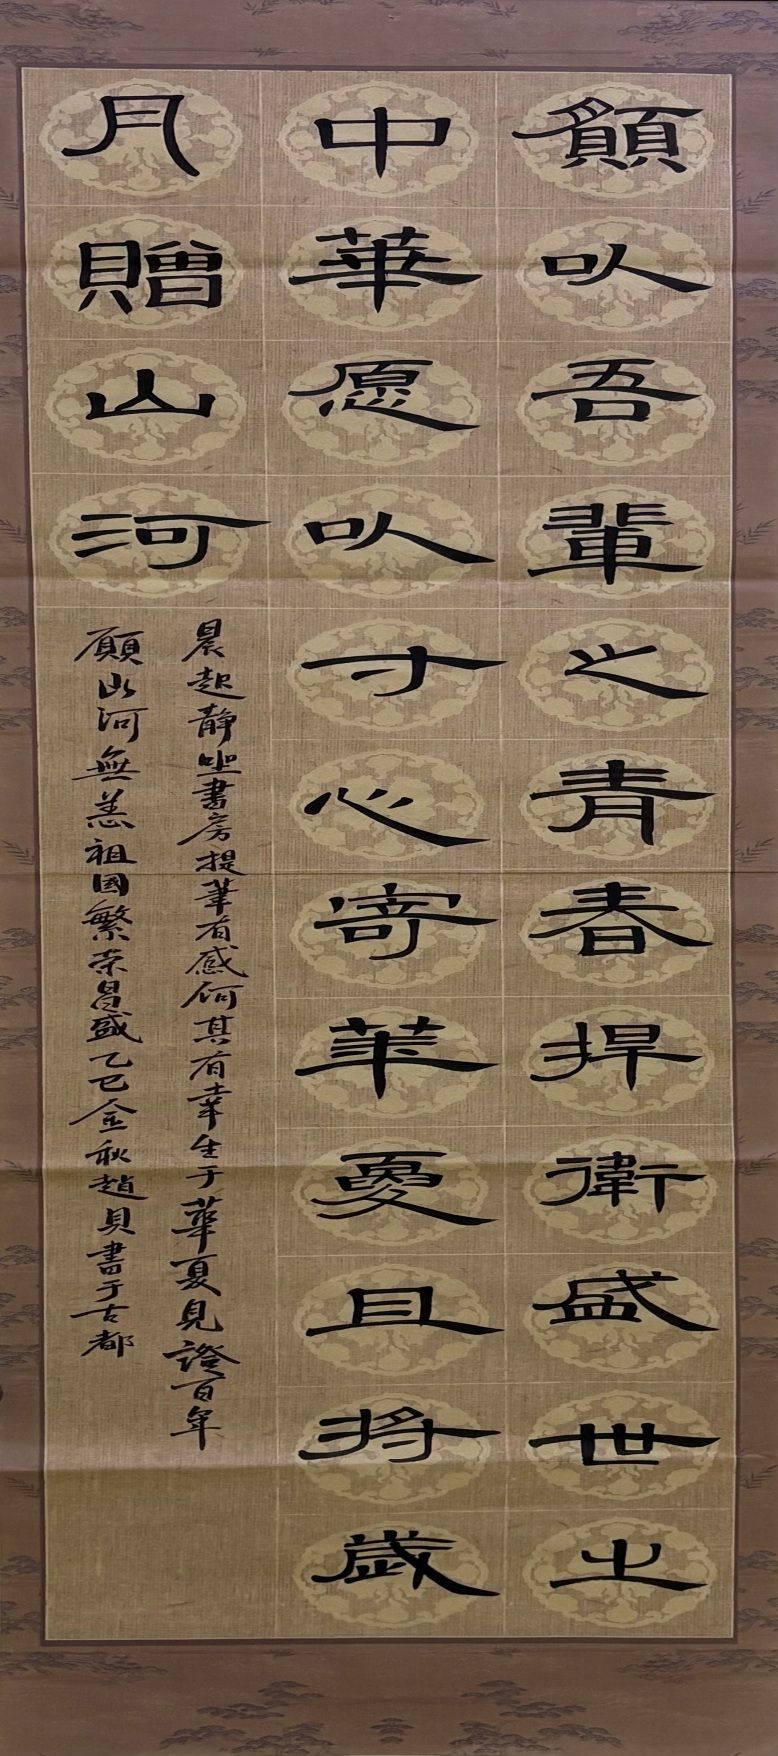 願以吾輩之青春捍衛盛世之
中華愿以寸心寄華夏且将歲
月贈山河
晨起靜坐書房提筆有感何其有幸生于華夏見證百年
願山河無恙祖國繁荣昌盛乙巳金秋趙貝書于古都